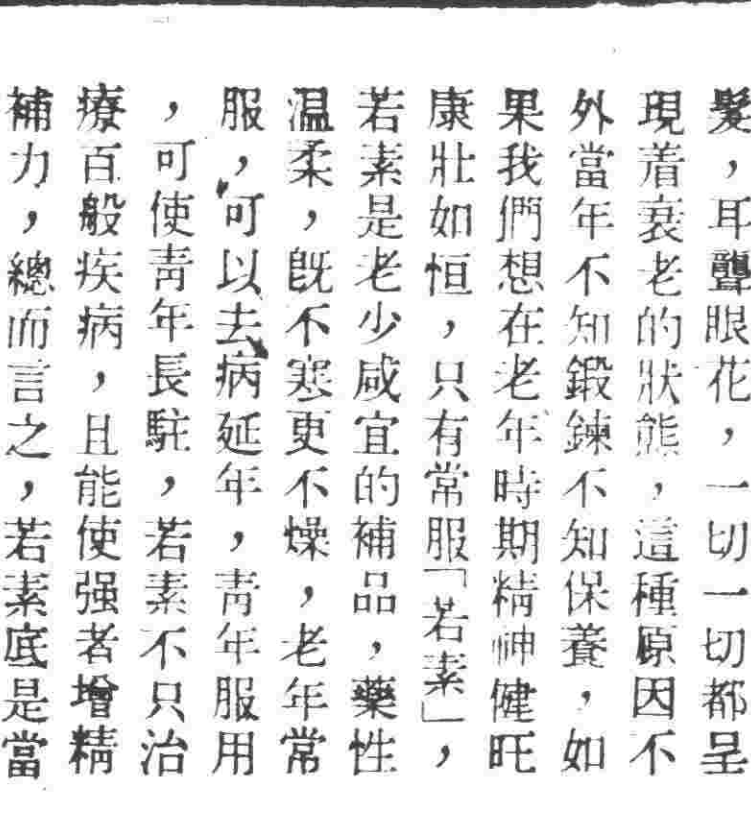 髮，耳聾眼花，一切一切都呈
現着衰老的狀態，這種原因不
外當年不知鍛鍊不知保養，如
果我們想在老年時期精神健旺
康壯如恒，只有常服「若素」，
若素是老少咸宜的補品，藥性
溫柔，旣不寒更不燥，老年常
服，可以去病延年，靑年服用
，可使靑年長駐，若素不只治
療百般疾病，且能使强者增精
補力，總而言之，若素底是當